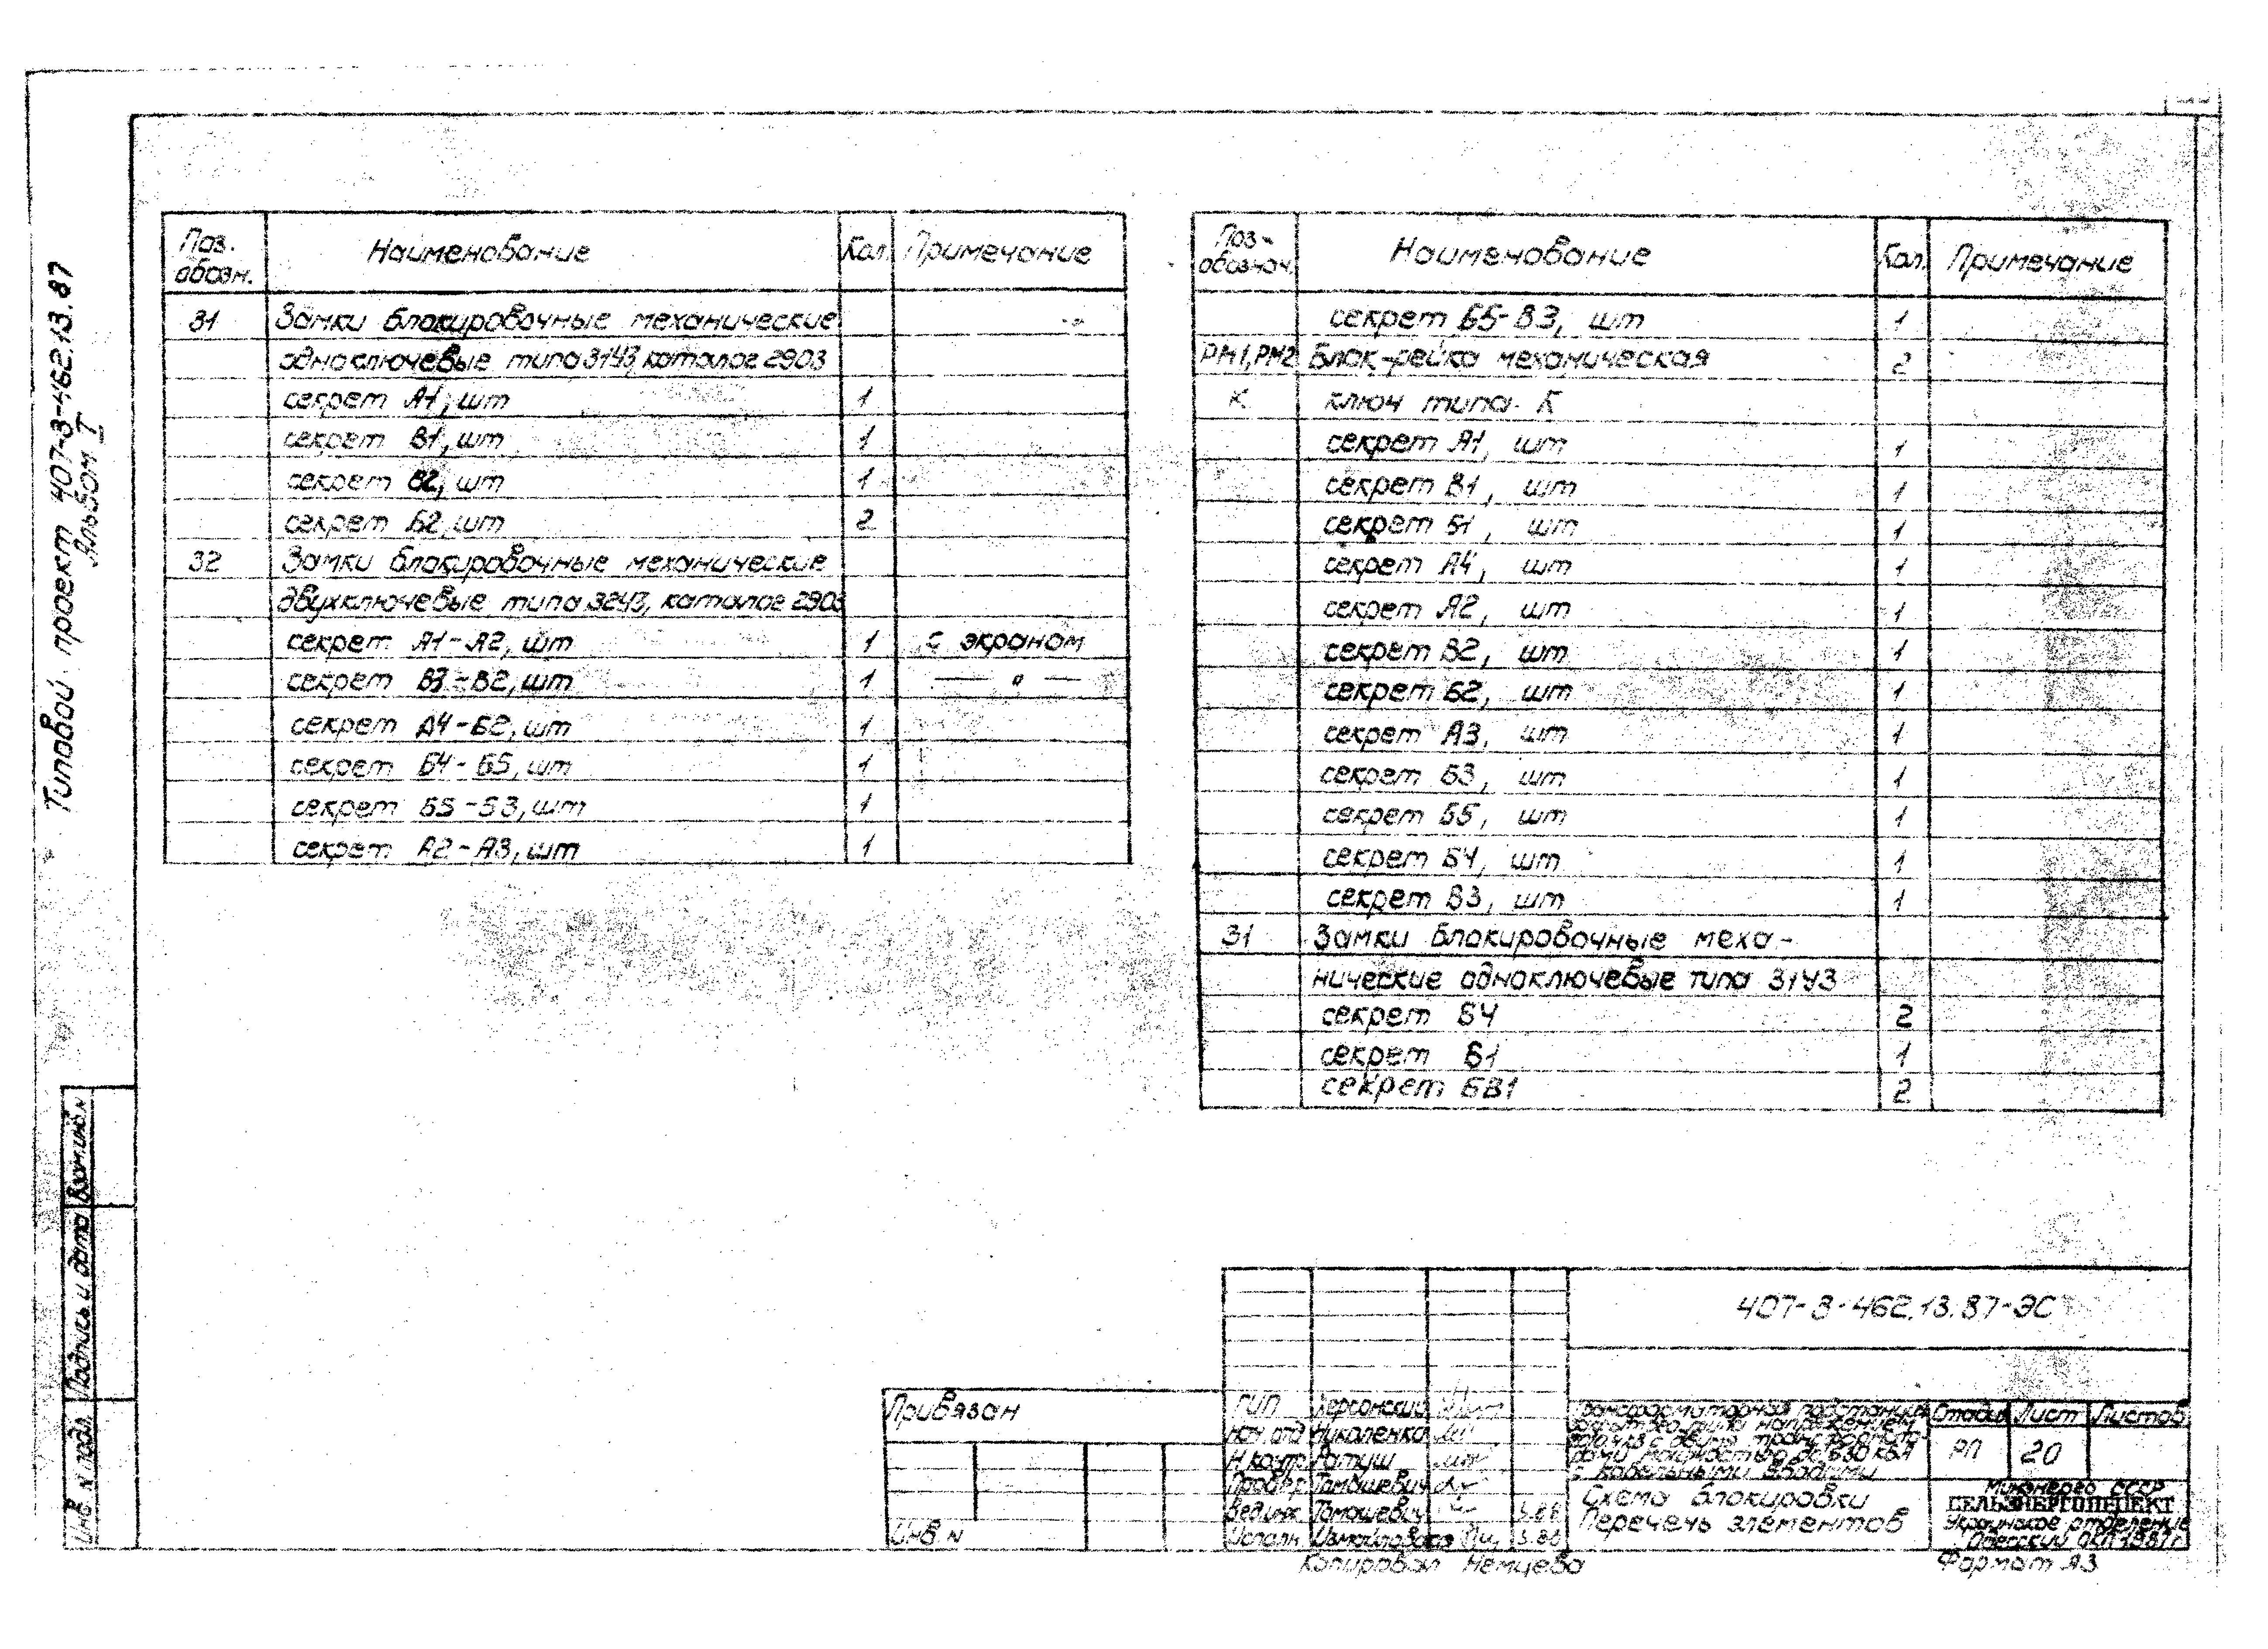 Типовой проект 407-3-462.13.87
Альбом I
Поз. обозн. Наименование Кол. Примечание
31 Замки блокировочные механические
одноключевые типа 31У3, каталог 2903
секрет А1, шт 1
секрет В1, шт 1
секрет В2, шт 1
секрет Б2, шт 2
32 Замки блокировочные механические
двухключевые типа 32У3, каталог 2903
секрет А1-А2, шт 1 с экраном
секрет В3-В2, шт 1 — " —
секрет А4-Б2, шт 1
секрет Б4-Б5, шт 1
секрет Б5-Б3, шт 1
секрет А2-А3, шт 1
Поз- обознач. Наименование Кол. Примечание
секрет Б5-В3, шт 1
РМ1, РМ2 Блок-рейка механическая 2
К ключ типа К
секрет А1, шт 1
секрет В1, шт 1
секрет Б1, шт 1
секрет А4, шт 1
секрет А2, шт 1
секрет В2, шт 1
секрет Б2, шт 1
секрет А3, шт 1
секрет Б3, шт 1
секрет Б5, шт 1
секрет Б4, шт 1
секрет В3, шт 1
31 Замки блокировочные меха-
нические одноключевые типа 31У3
секрет Б4 2
секрет Б1 1
секрет БВ1 2
Взам.инв.N
Подпись и дата
Инв N подл.
407-3-462.13.87-ЭС
Привязан
Инв. N
ГИП Херсонский
Нач. отд Николенко
Н.контр. Ратуш
Провер. Томашевич
Вед.инж. Томашевич 3.86
Исполн. 3.86
Трансформаторная подстанция
с двумя трансформато-
рами мощностью до 630 кВА
с кабельными вводами
Стадия Лист Листов
РП 20
Схема блокировки
Перечень элементов
Минэнерго СССР
СЕЛЬЭНЕРГОПРОЕКТ
Украинское отделение
Одесский 1987г
Копировал Немцева
Формат А3